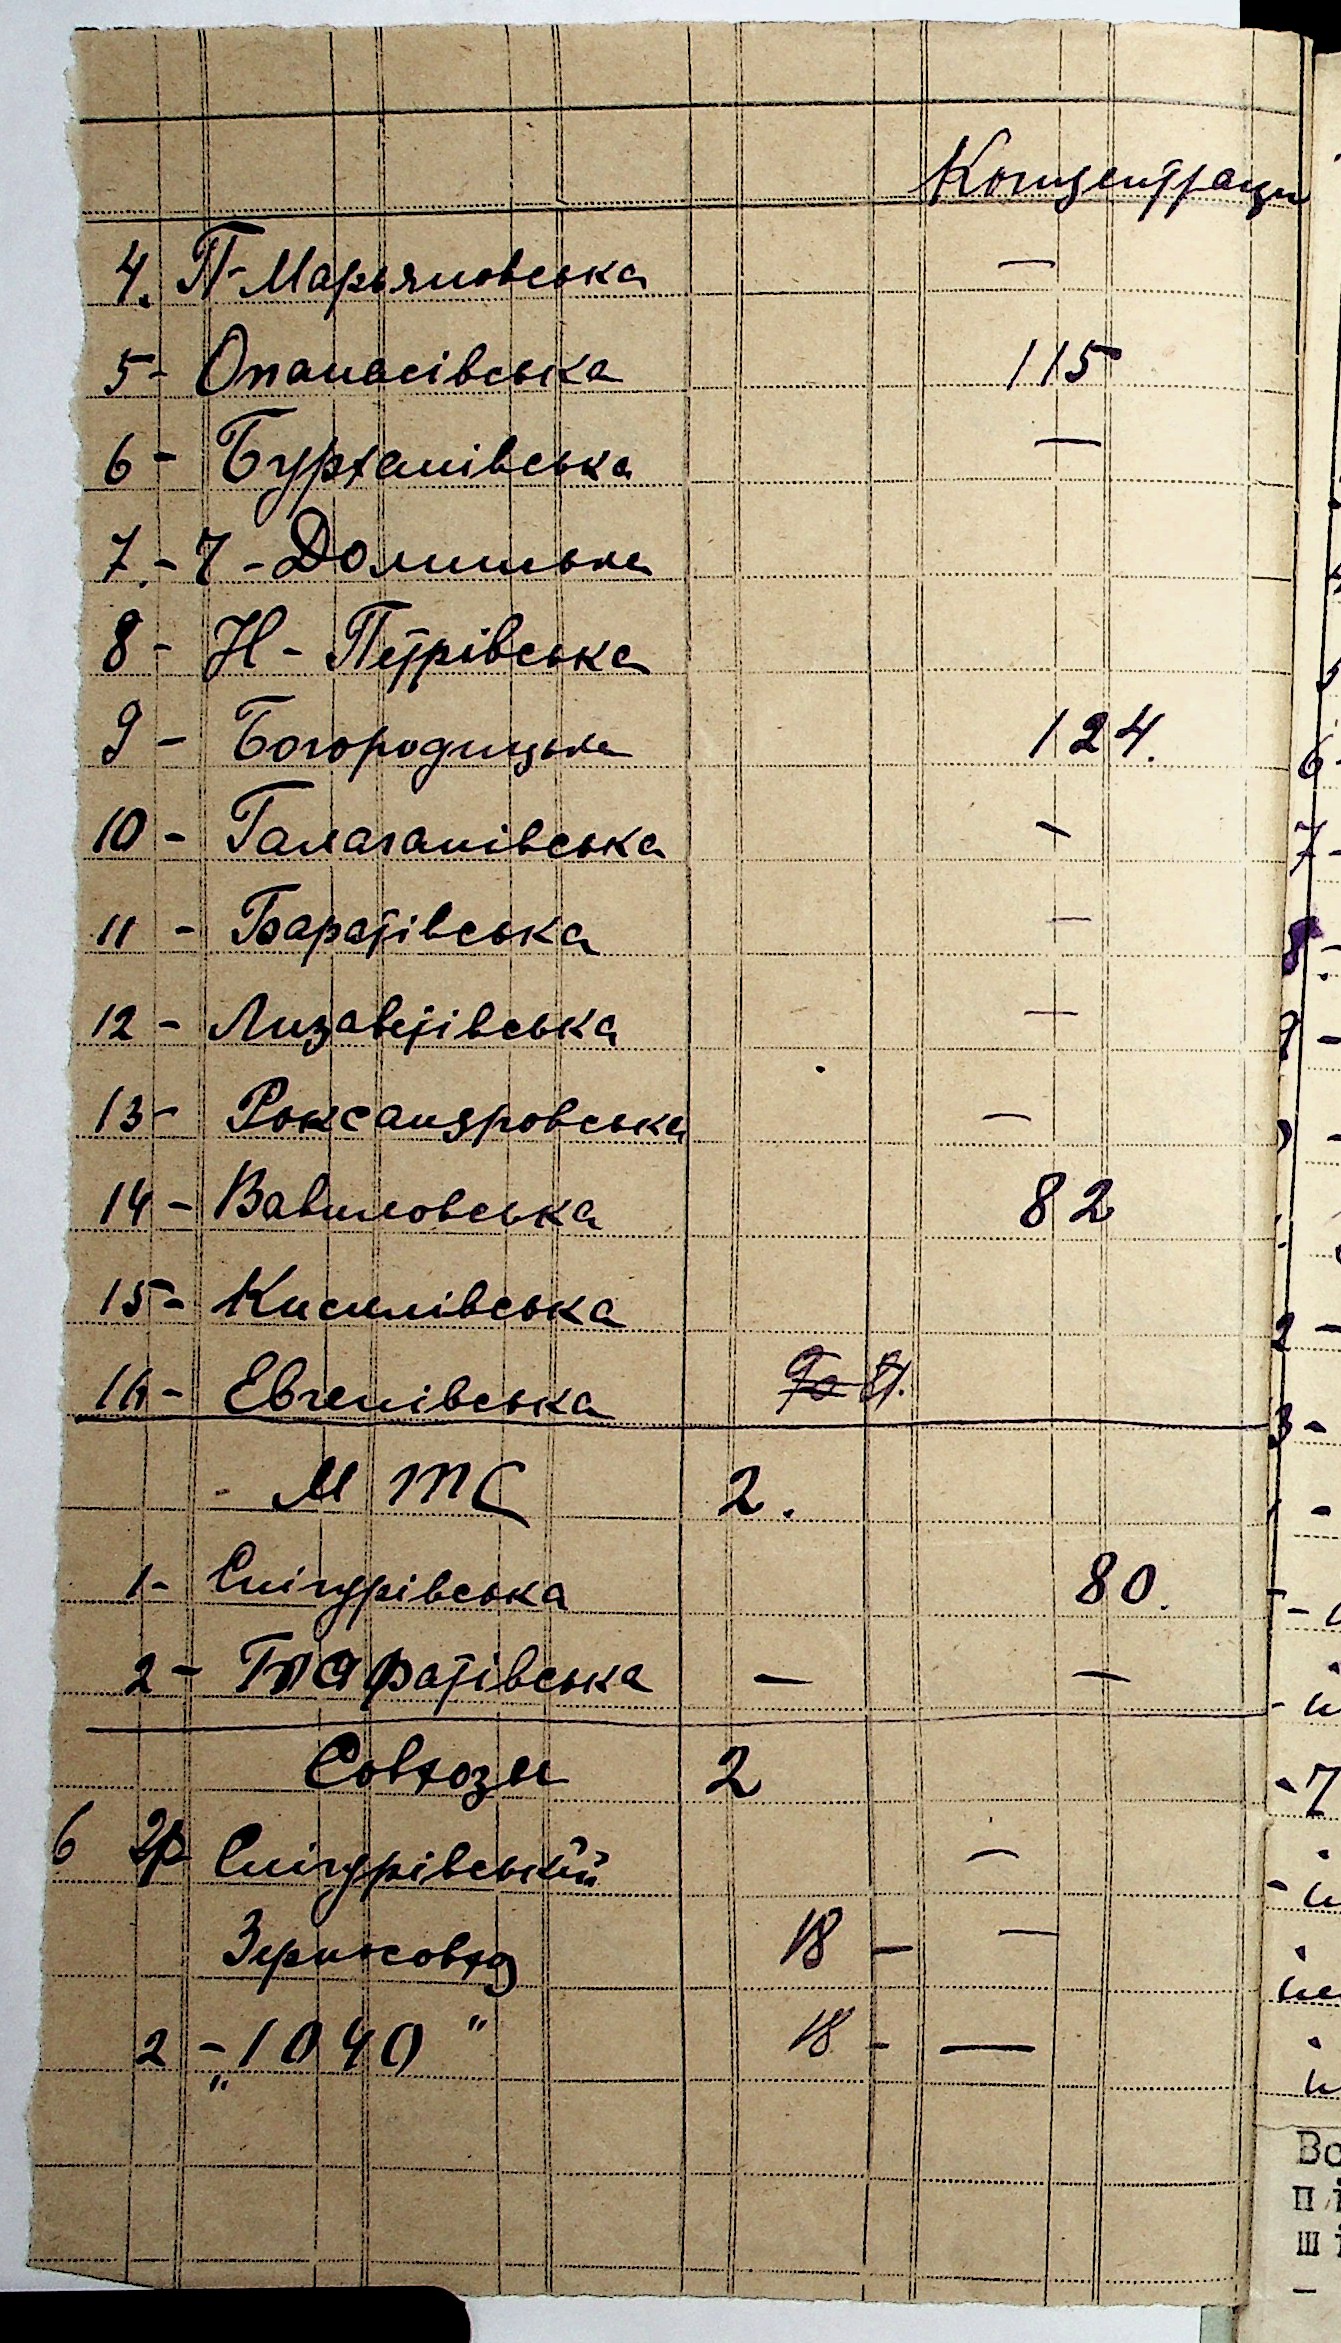 Концентраци
4. П-Марьяновська —
5- Опанасівська 115
6 - Бурханівська —
7.- 7 - Долинська
8 - Н - Петрівська
9 - Богородицька 124.
10 - Галаганівська -
11 - Баратівська —
12 - Лизаветівська —
13- Роксандровська —
14 - Вавиловська 82
15- Кисилівська
16- Евгенівська
МТС 2.
1- Снігурівська 80.
2 - Баратівська — —
Совхозы 2
6 Снігурівський —
Зерносовхоз 18 - —
2 - " 1040 " 18 - —